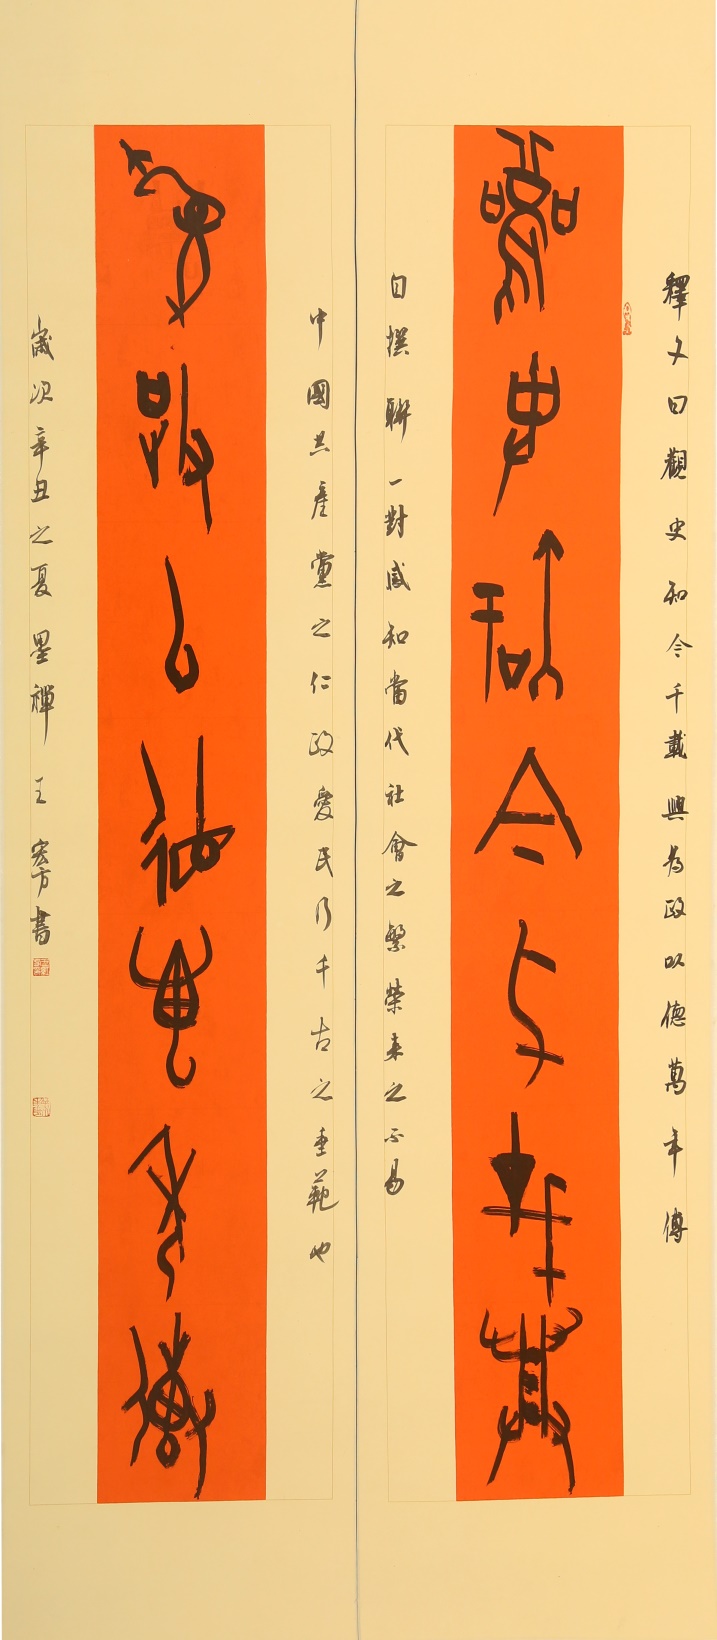 釋文曰觀史和今千載興為政以德萬年傳
觀史和今千載興
自撰聯一對感知當代社會之繁榮來之不易
中國共產黨之仁政愛民乃千古之垂範也
為政以德萬年傳
歲次辛丑之夏墨禪王宏方書